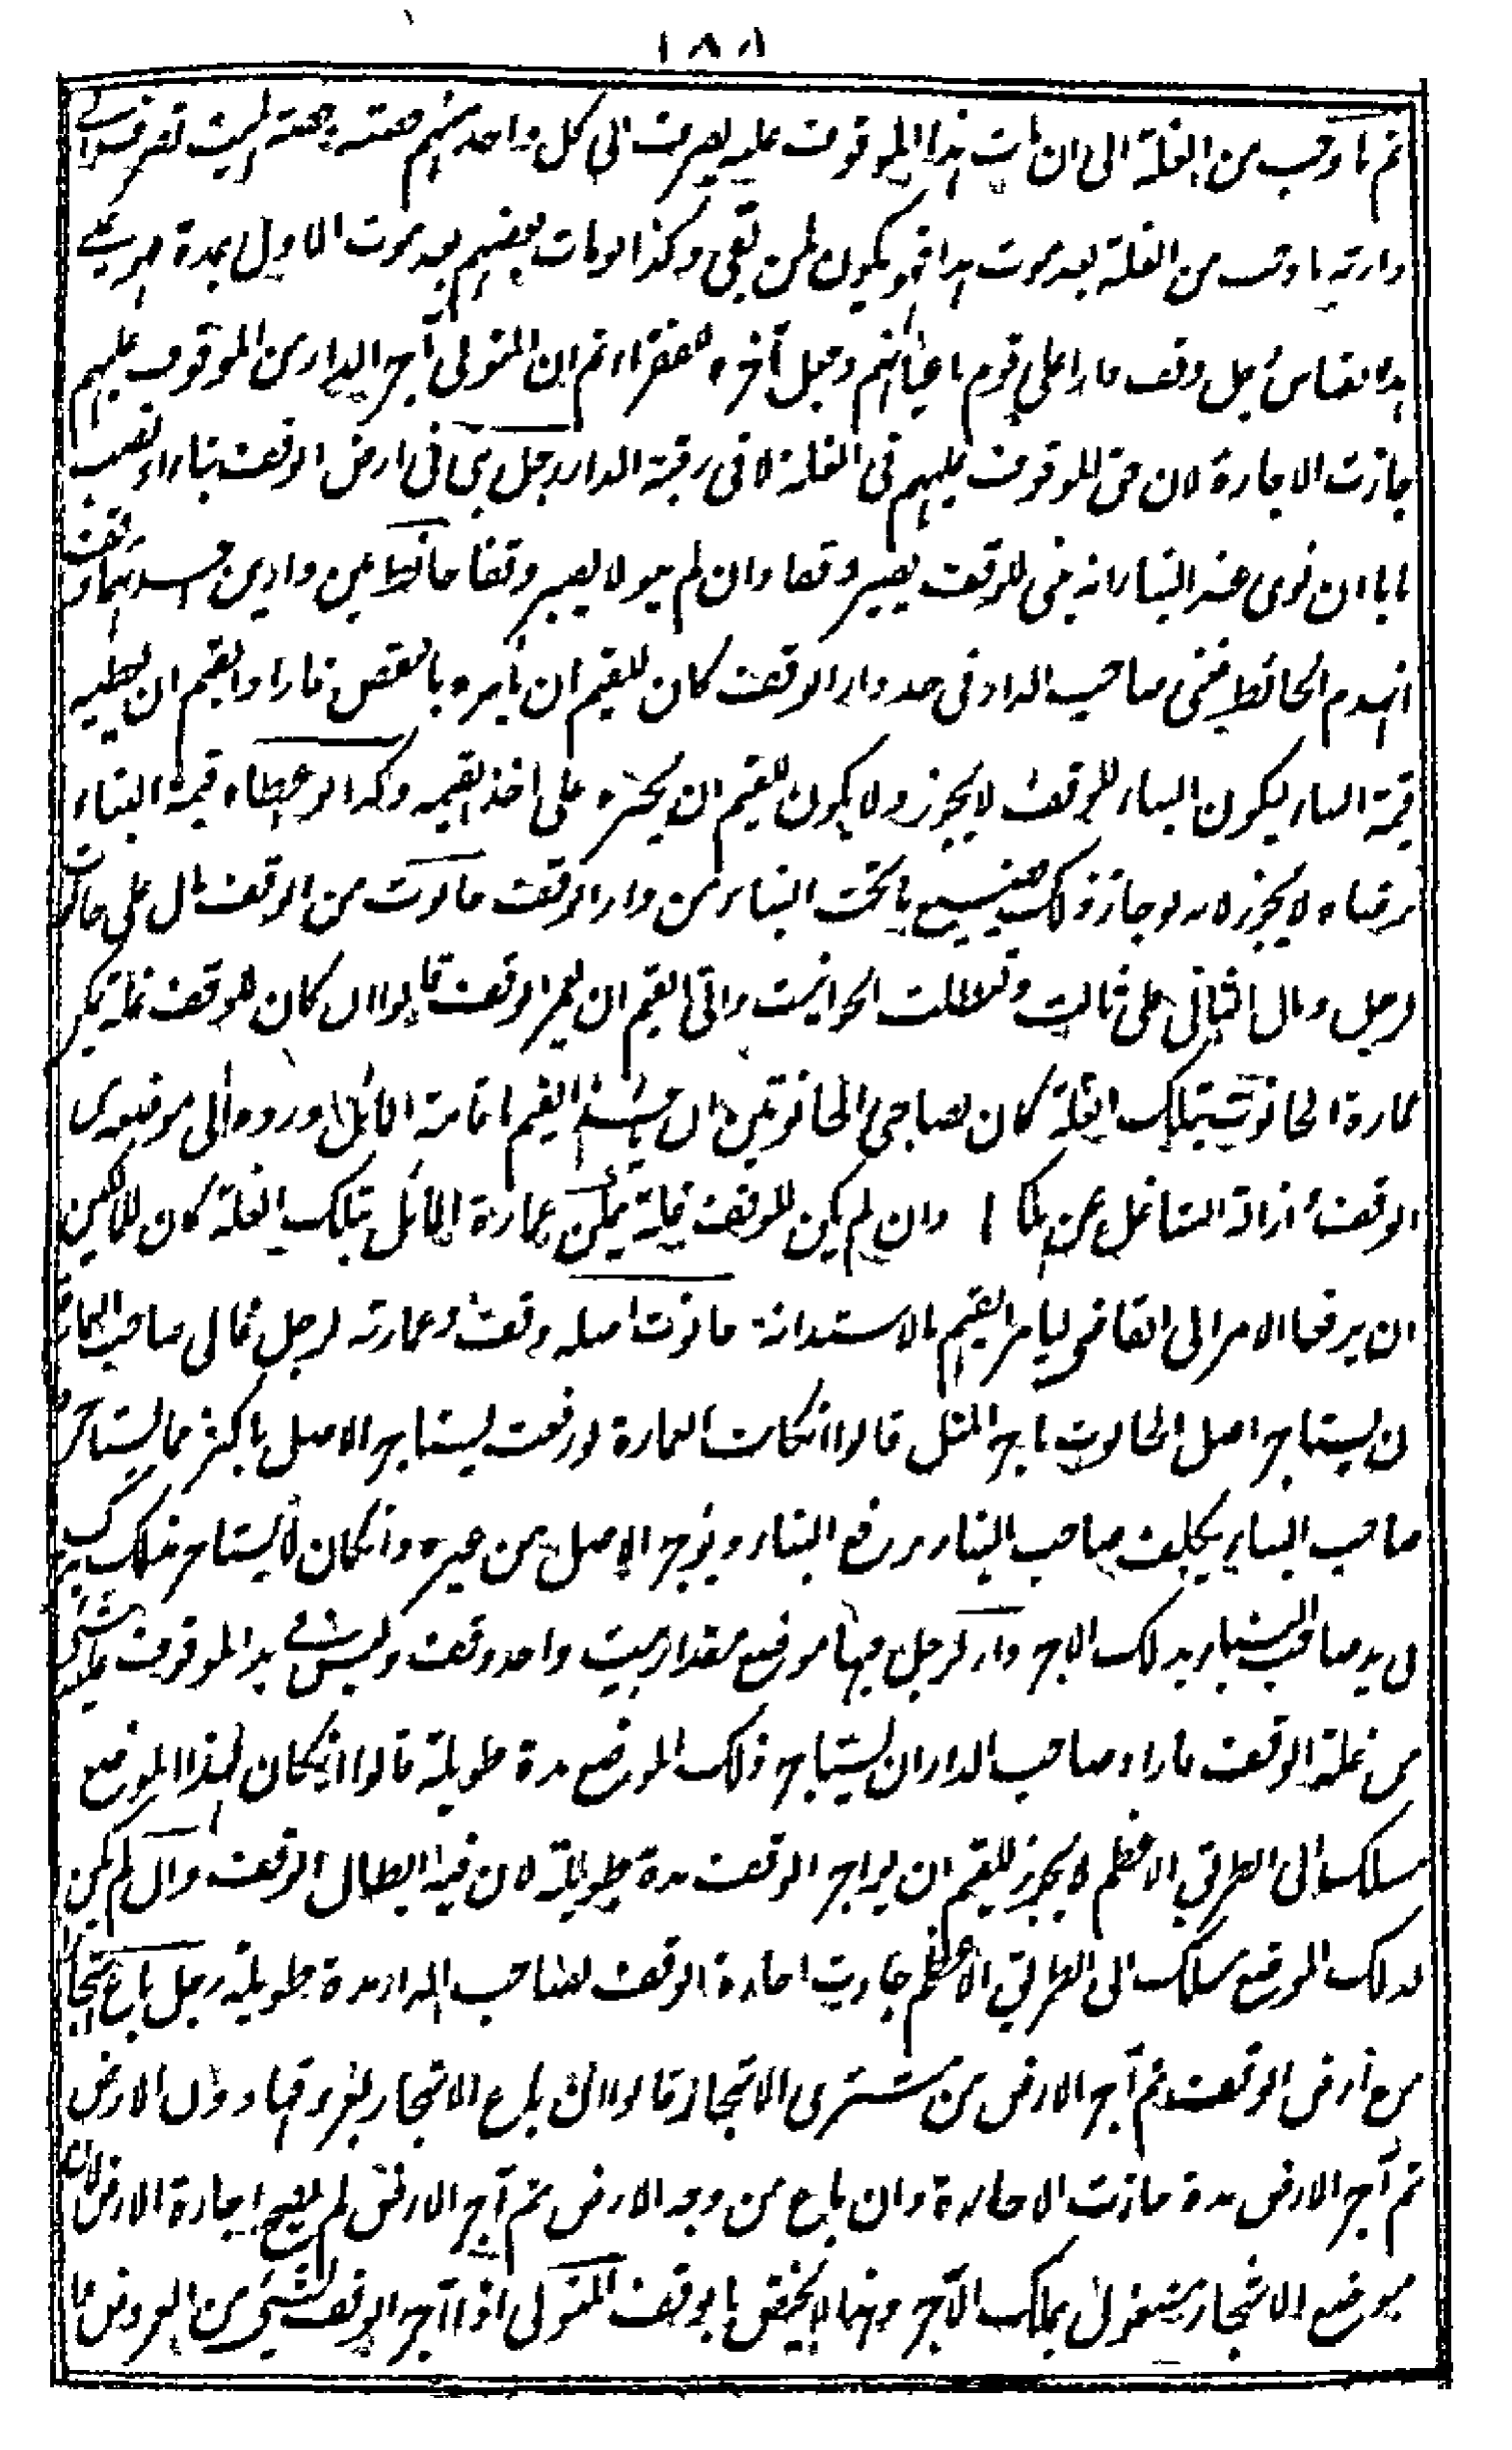 ١٨٨
ثم ما وجب من الغلة الى ان مات هذا الموقوف عليه يصرف الى كل واحد منهم حصته وحصة الميت تصرف الى
وارثه ما وجب من الغلة بعد موت هذا فهو يكون لمن بقى وكذا لو مات بعضهم بعد موت الاول بمدة فهو على
هذا القياس رجل وقف دارا على قوم باعيانهم وجعل آخره للفقراء ثم ان المتولى آجر الدار من الموقوف عليهم
جازت الاجارة لان حق الموقوف عليهم فى الغلة لا فى رقبة الدار رجل بنى فى ارض الوقف بناء او نصب
بابا ان نوى عند البناء انه بنى للوقف يصير وقفا وان لم ينو لا يصير وقفا حائط بين دارين احدهما وقف
انهدم الحائط فبنى صاحب الدار فى حد دار الوقف كان للقيم ان يأمره بالنقض فاراد القيم ان يعطيه
قيمة البناء ليكون البناء للوقف لا يجوز ولا يكون للقيم ان يجبره على اخذ القيمة وكذا لو اعطاه قيمة البناء
برضاه لا يجوز لانه لو جاز ذلك يضيع ما تحت البناء من دار الوقف حانوت من الوقف مال على حانوت
لرجل ومال الثانى على ثالث وتعطلت الحوانيت وابى القيم ان يعمر الوقف قالوا ان كان للوقف غلة يمكن
عمارة الحانوت بتلك الغلة كان لصاحبى الحانوتين ان القيم اقامة المائل او رده الى موضع فى
الوقف وازالة الشاغل عن ملكهما وان لم يكن للوقف غلة يمكن عمارة المائل بتلك الغلة كان للمالكين
ان يرفعا الامر الى القاضى ليامر القيم بالاستدانة حانوت اصله وقف وعمارته لرجل فابى صاحب العمارة
ان يستاجر اصل الحانوت باجر المثل قالوا ان كانت العمارة لو رفعت يستاجر الاصل باكثر مما يستاجر
صاحب البناء يكلف صاحب البناء برفع البناء ويوجر الاصل من غيره وان كان لا يستاجر بذلك يترك
فى يد صاحب البناء بذلك الاجر دار لرجل فيها موضع مقدار بيت واحد وقف وليس فى يد الموقوف عليه شئ
من غلة الوقف فاراد صاحب الدار ان يستاجر ذلك الموضع مدة طويلة قالوا ان كان لهذا الموضع
مسلك الى الطريق الاعظم لا يجوز للقيم ان يواجر الوقف مدة طويلة لان فيه ابطال الوقف وان لم يكن
لذلك الموضع مسلك الى الطريق الاعظم جازت اجارة الوقف لصاحب الدار مدة طويلة رجل باع اشجارا
من ارض الوقف ثم آجر الارض من مشترى الاشجار قالوا ان باع الاشجار بعروقها دون الارض
ثم آجر الارض مدة جازت الاجارة وان باع من وجه الارض ثم آجر الارض لم يصح اجارة الارض لان
موضع الاشجار مشغول بملك الآجر وهذا لا يختص بالوقف المتولى اذا آجر الوقف بشئ من العروض